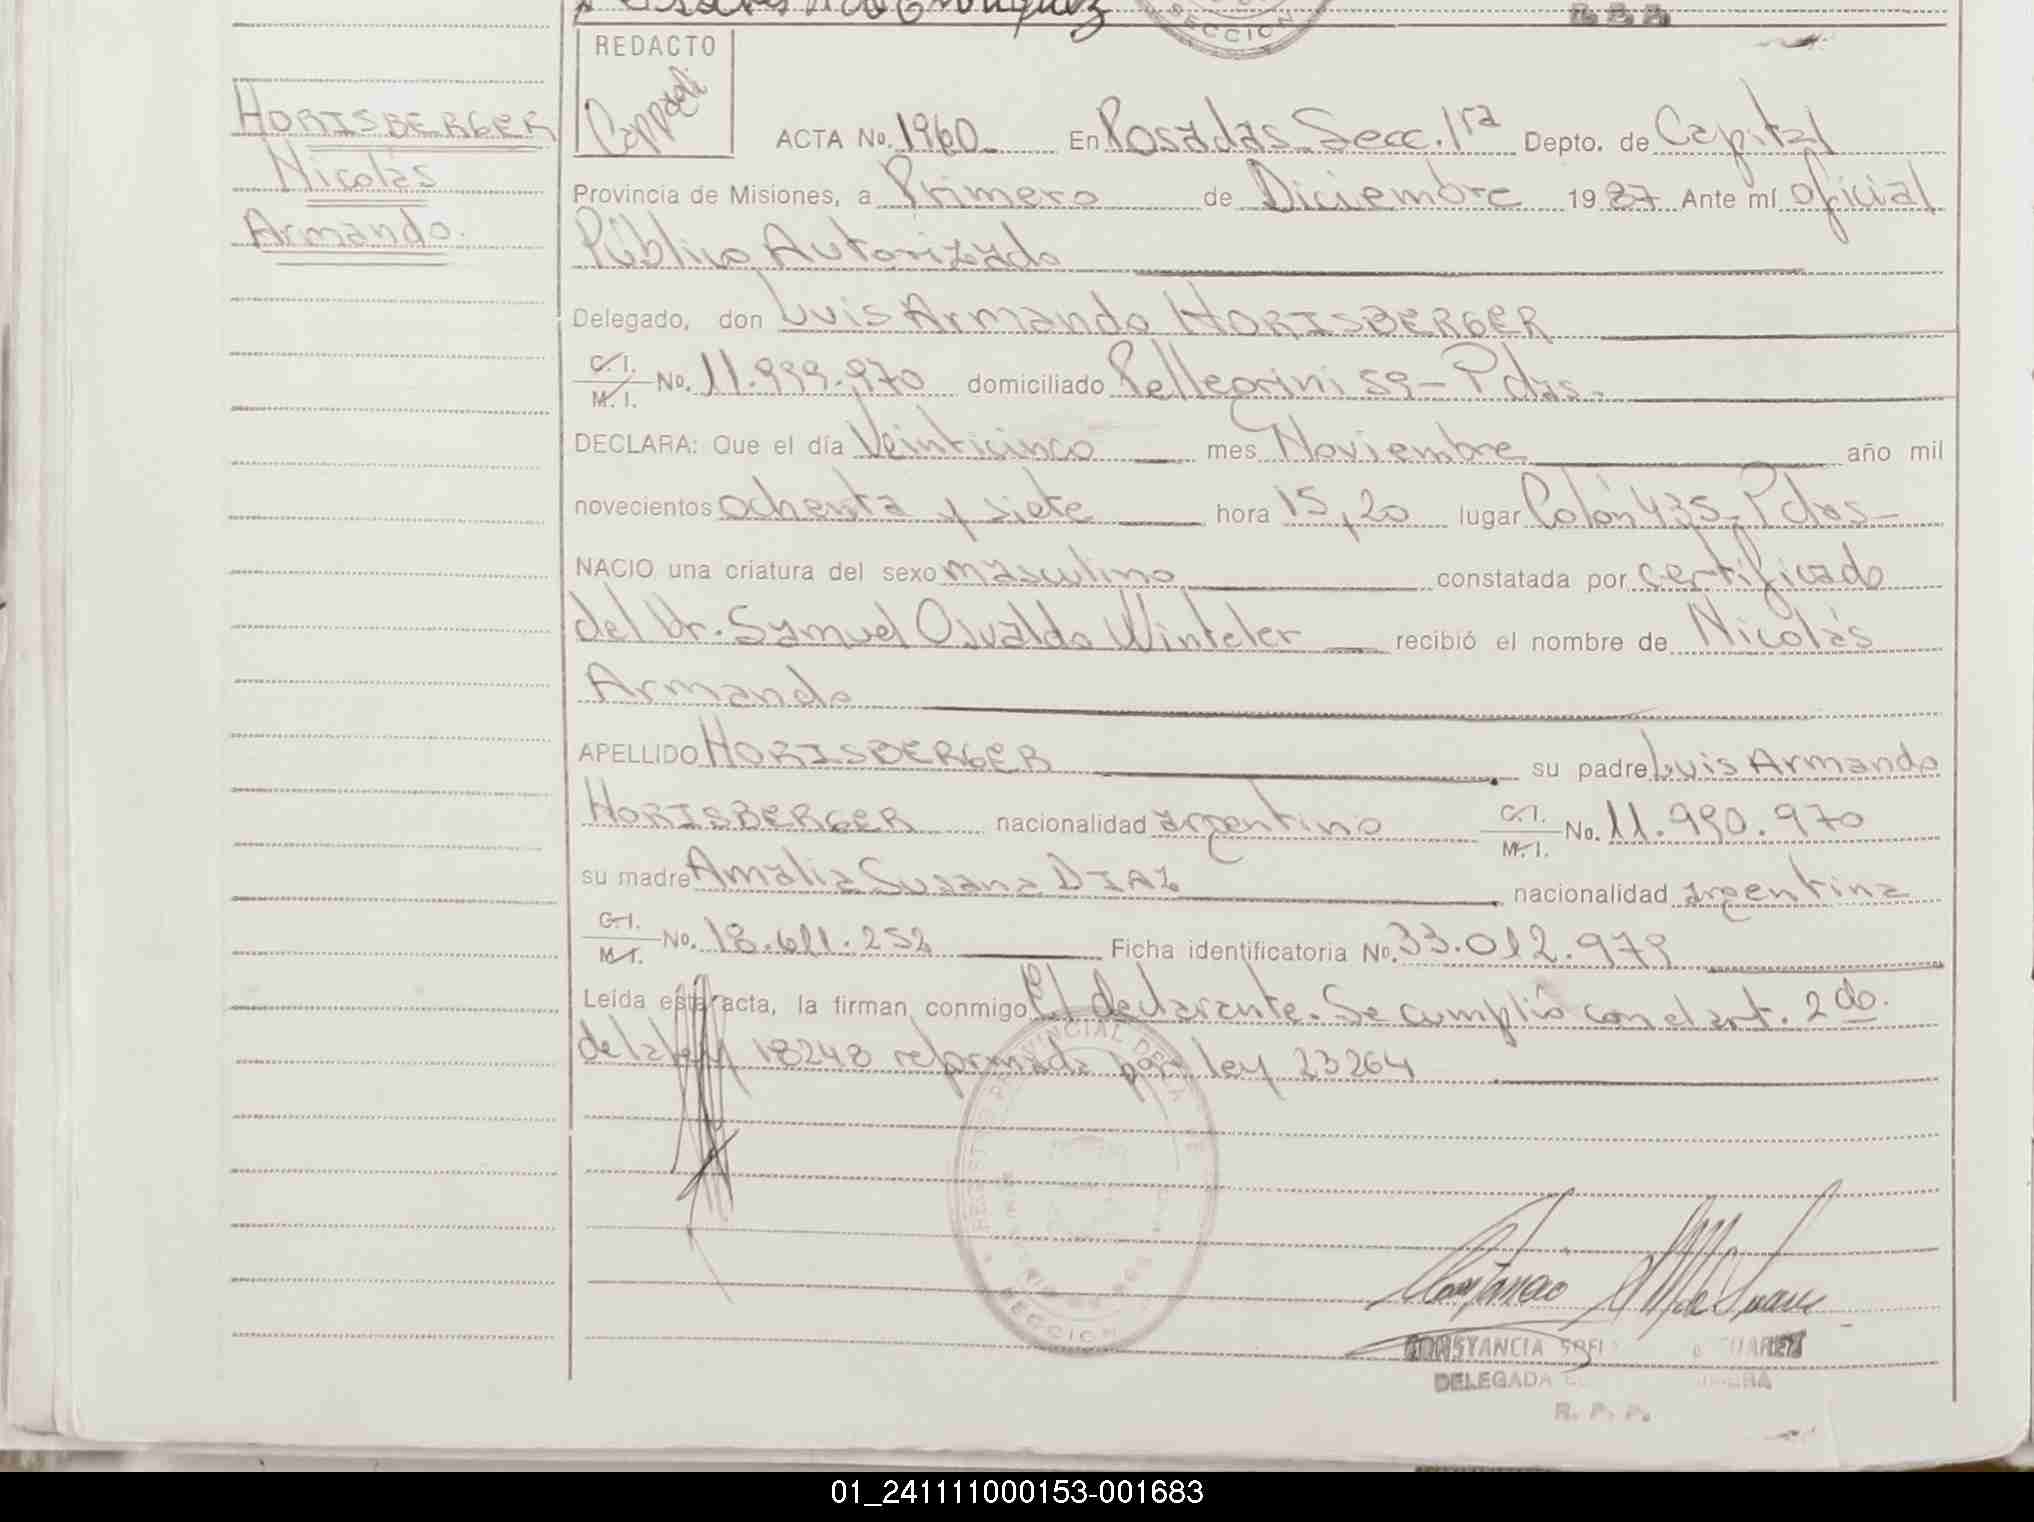 SECCION
R. P. P.
REDACTO
HORISBERGER
Nicolás
Armando.
ACTA No. 1960 En Posadas Secc. 1ra Depto. de Capital
Provincia de Misiones, a Primero de Diciembre 1987 Ante mí oficial
Público Autorizado
Delegado, don Luis Armando HORISBERGER
C. I.
M. I. No. 11.999.970 domiciliado Pellegrini 59 - Pdas.
DECLARA: Que el día Veinticinco mes Noviembre año mil
novecientos ochenta y siete hora 15,20 lugar Colón 435 - Pdas -
NACIO una criatura del sexo masculino constatada por certificado
del Dr. Samuel Osvaldo Winteler recibió el nombre de Nicolás
Armando
APELLIDO HORISBERGER su padre Luis Armando
HORISBERGER nacionalidad argentino C. I.
M. I. No. 11.990.970
su madre Amalia Susana DIAZ nacionalidad argentina
C. I.
M. I. No. 18.611.252 Ficha identificatoria No. 33.012.979
Leída esta acta, la firman conmigo El declarante. Se cumplió con el art. 2do.
de la ley 18248 reformada por ley 23264
REGISTRO PROVINCIAL DE LAS
SECCION
CONSTANCIA
DELEGADA
R. P. P.
01_241111000153-001683